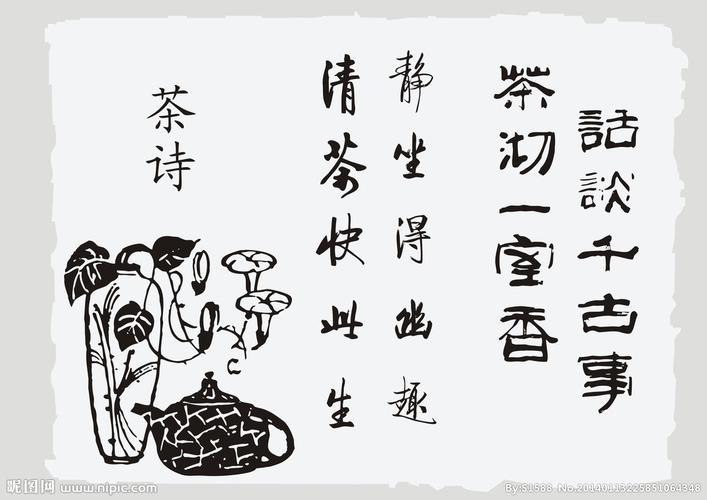 話談千古事
茶沏一室香
静坐得幽趣
清茶快此生
茶诗
昵图网 www.nipic.com
By:S1588 No.20140113225851064348